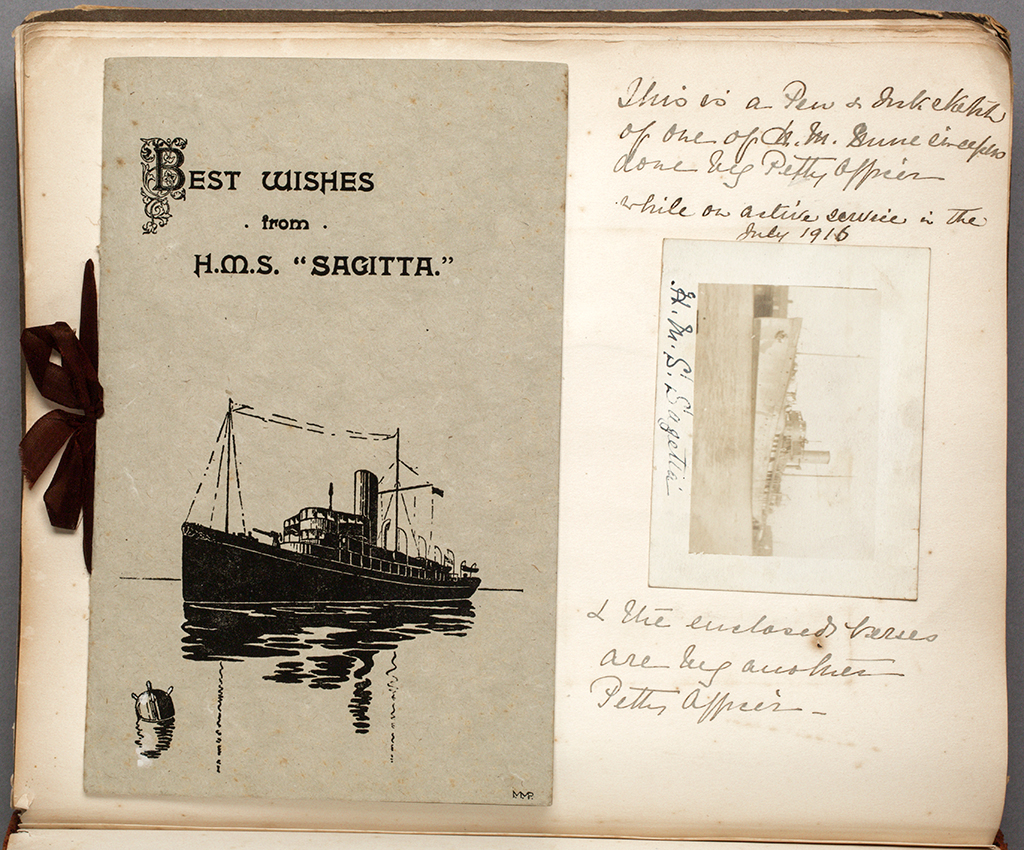 BEST WISHES
. from .
H.M.S. "SAGITTA."
MMP.
This is a Pen & Ink sketch
of one of H.M. Mine sweepers
done by Petty Officer
while on active service in the
July 1916
H.M.S. Sagitta
& the enclosed verses
are by another
Petty Officer -